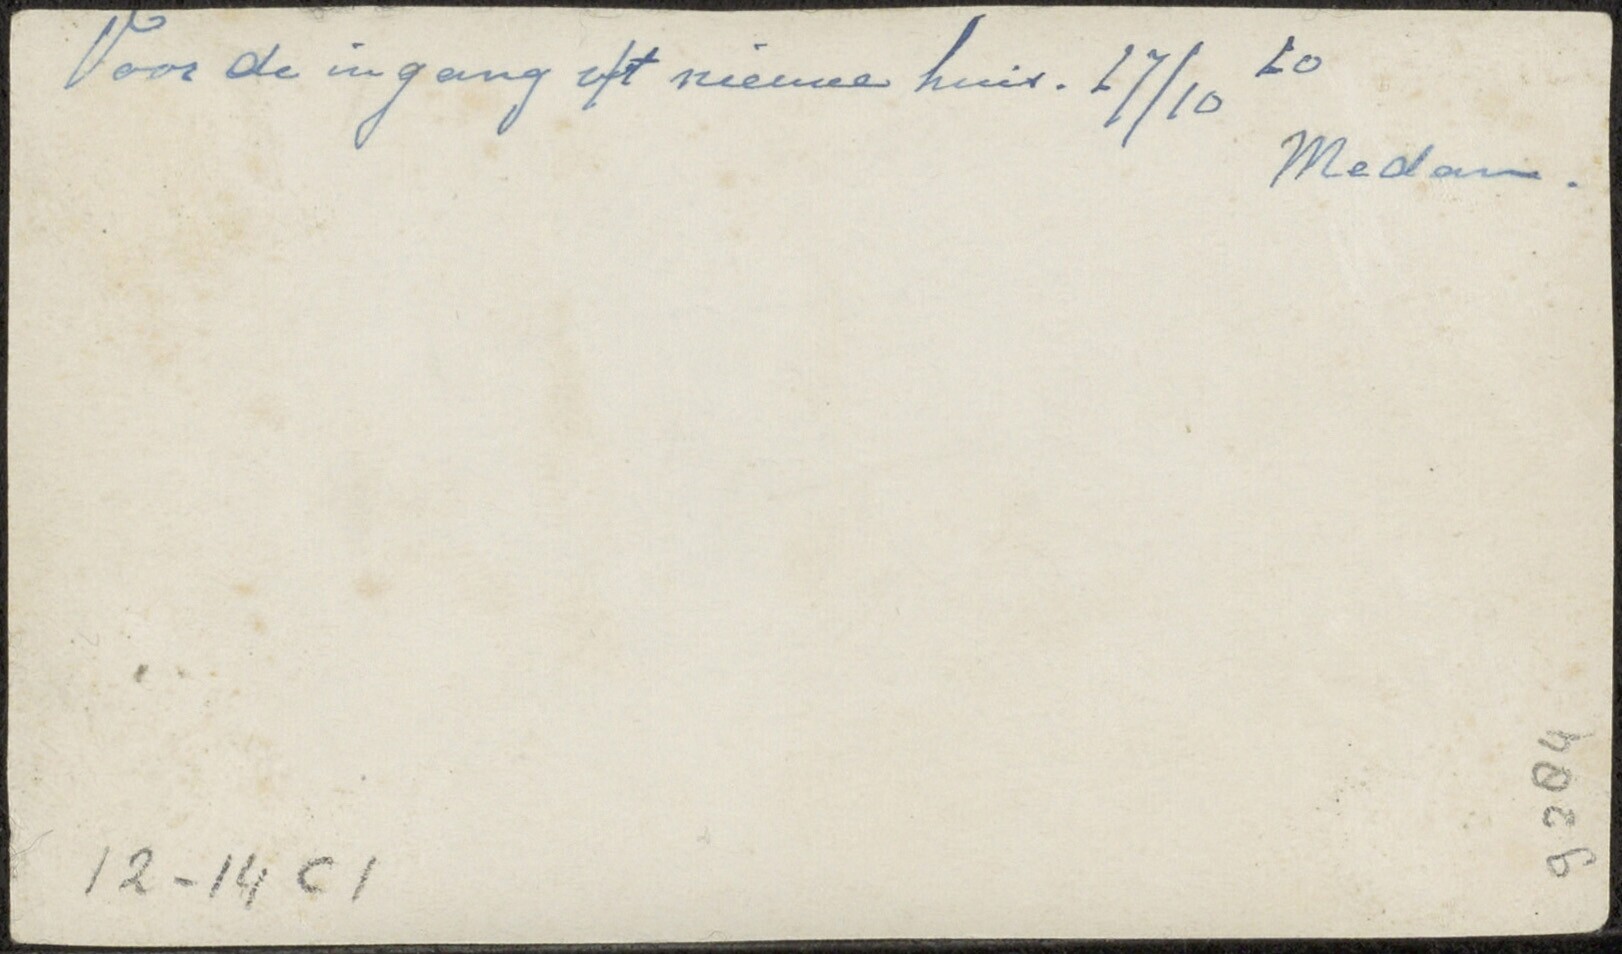 Voor de ingang v/t nieuwe huis. 27/10 20
Medan.
12-14 C1
9204